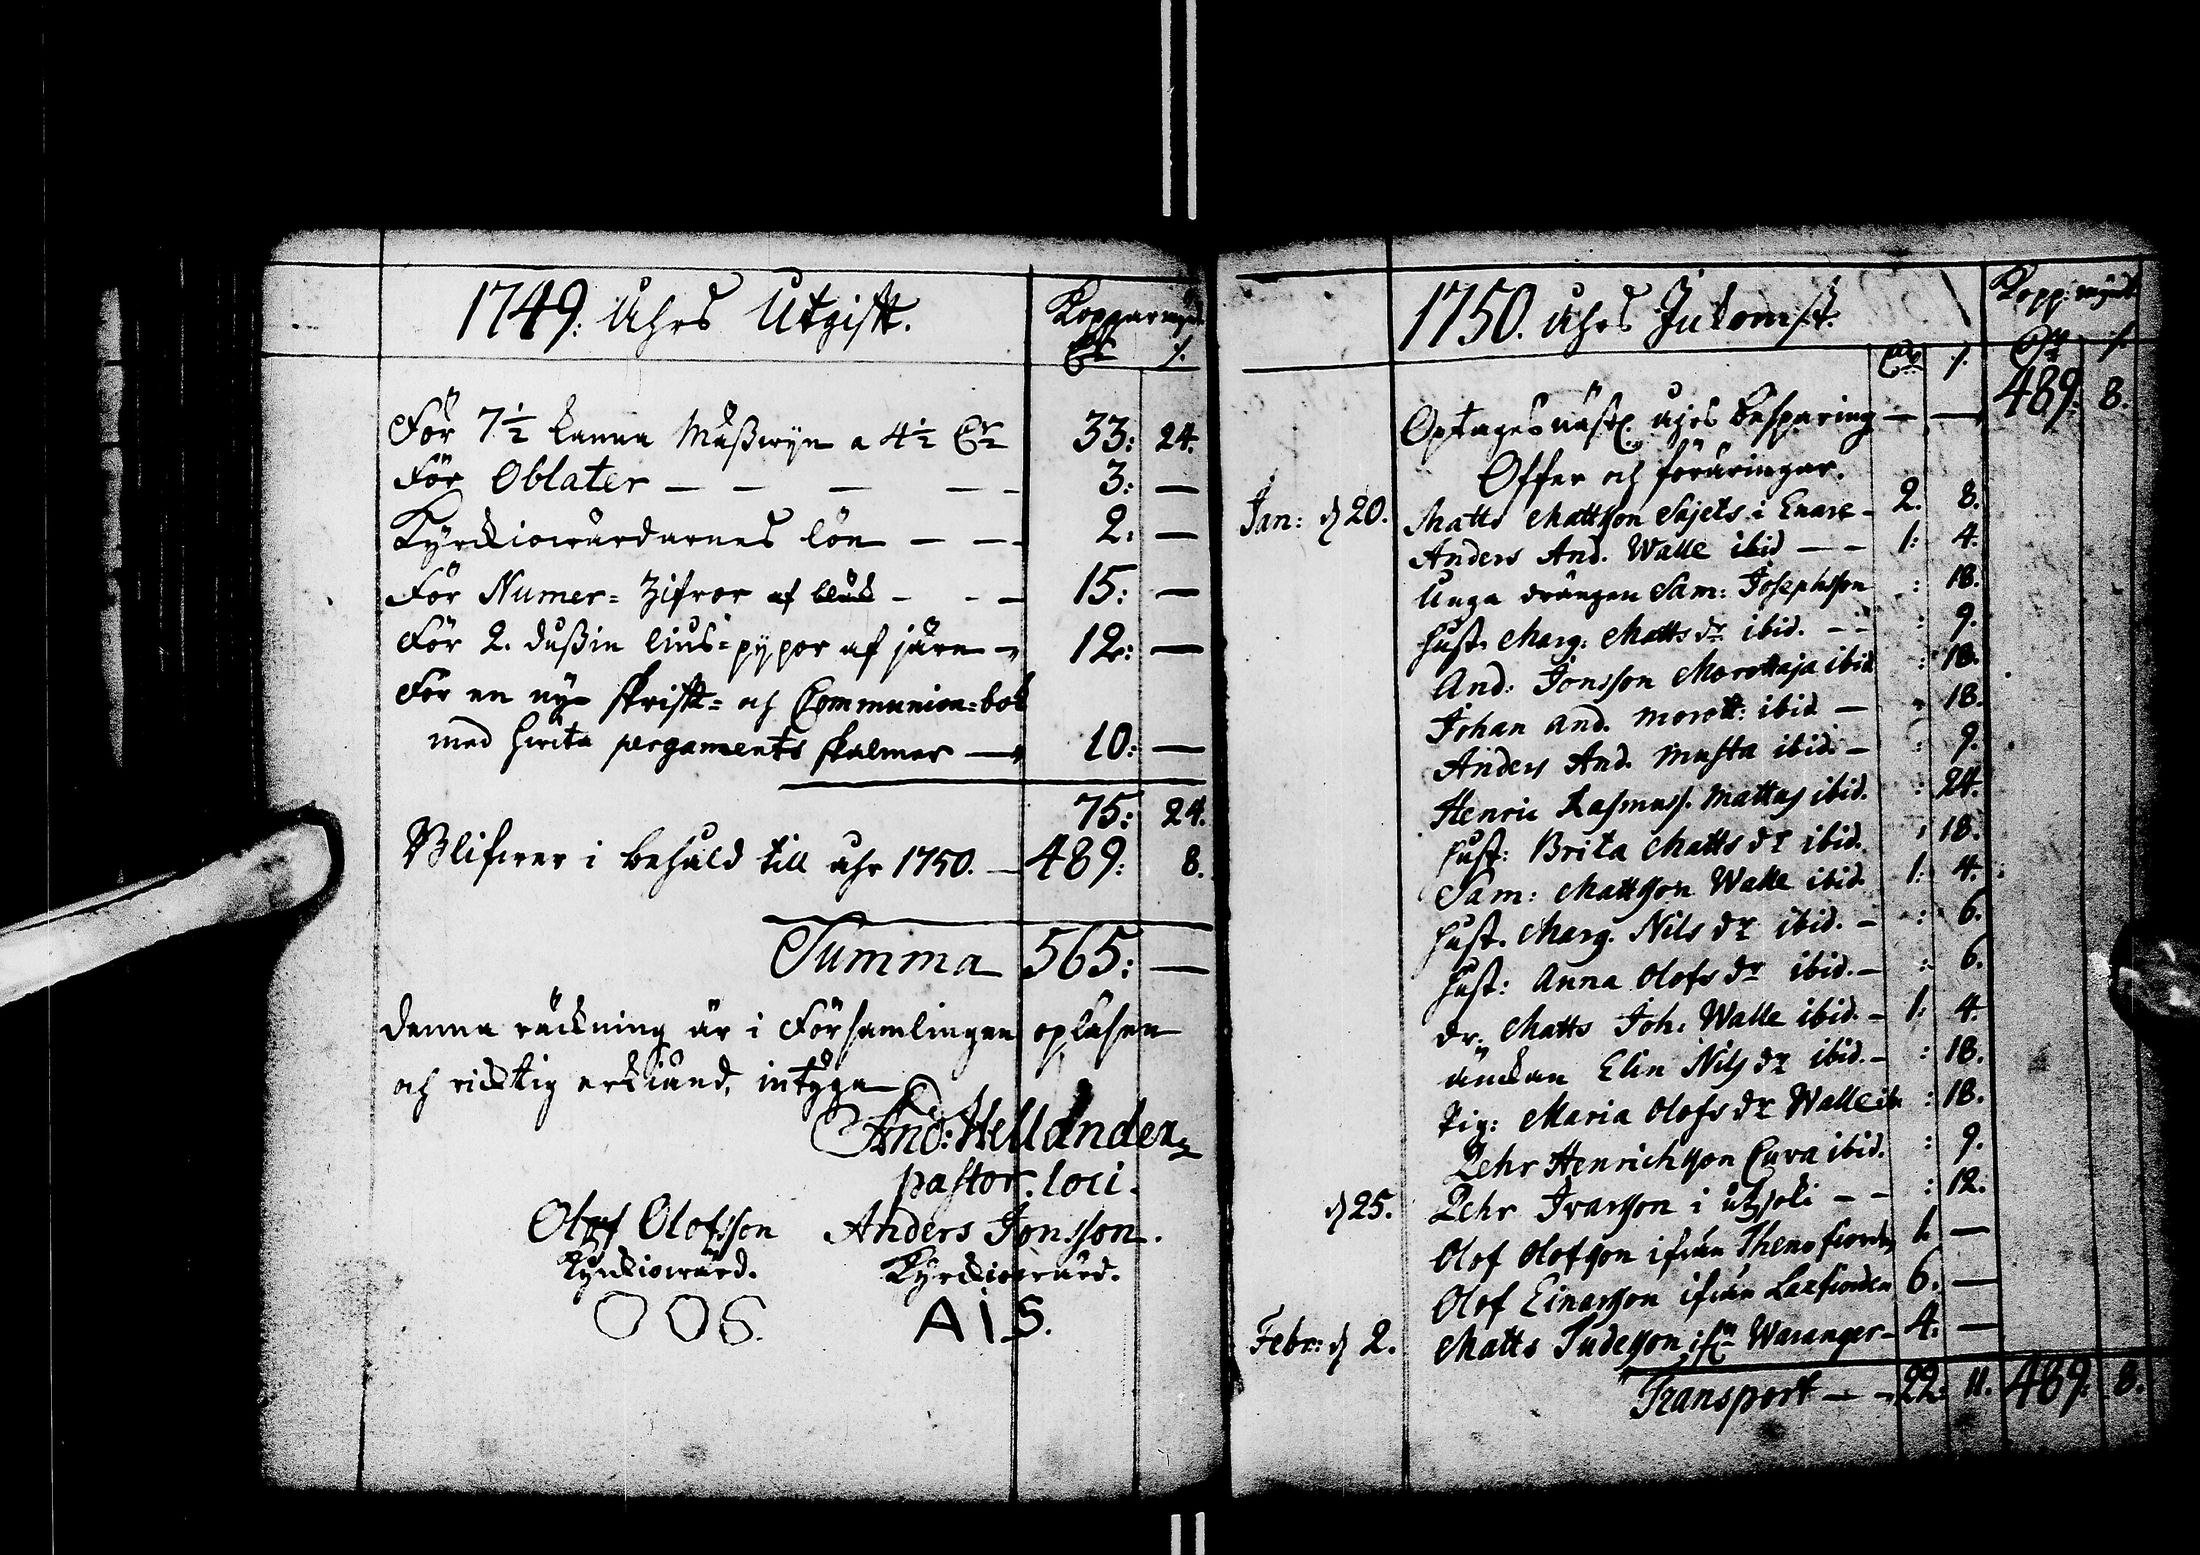 1749. åhrs Utgift.
Kopparmynt
Dlr /.
För 7½ kanna Mässwyn a 4½ Dlr 33: 24.
För Oblater — — — — — 3: —
Kyrckiowärdarnes lön — — 2. —
För Numer= Zifror af bläck - - - 15: —
För 2. dussin lius=pypor af järn - 12: —
För en ny skrift= och Communion=bok
med hwita pergaments skalmar — 10: —
75: 24.
Blifwer i behåld till åhr 1750. — 489: 8.
Summa 565: —
denna räckning är i Församlingen opläsen
och ricktig erkiänd, intyga
And: Hellander
pastor. loci.
Olof Olofsson Anders Jonsson.
Kyrckiowärd. Kyrckiowärd.
O O S. A I S.
1750. åhrs Inkomst.
Kopp: mynt.
Dlr /. Dlr /.
Optages näst. åhrs besparing — — 489: 8.
Offer och föräringar.
Jan: d 20. Matts Mattsson Sajets i Enare - 2. 8.
Anders And. Walle ibid — — 1: 4.
Unga drängen Sam: Josephsson : 18.
hust. Marg: Matts dr ibid. - - : 9.
And: Jonsson Morottaja ibid : 18.
Johan And. Morott: ibid — : 18.
Anders And. Musta ibid. — : 9.
Henric Rasmuss. Mattus ibid. : 24.
hust: Brita Matts dr ibid. : 18.
Sam: Mattsson Walle ibid. 1: 4.
hust. Marg. Nils dr ibid. - : 6.
hust: Anna Olofs dr ibid. — : 6.
dr: Matts Joh. Walle ibid. - 1: 4.
änckan Elin Nils dr ibid. - : 18.
Pig: Maria Olofs dr Walle ib. : 18.
Pehr Henrichsson Cuva ibid. : 9.
d 25. Pehr Ivarsson i utzjoki - - : 12.
Olof Olofsson ifrån Theno fiorden 1. —
Olof Einarsson ifrån Laxfiorden 6. —
Febr: d 2. Matts Judesson ifrn Waranger - 4. —
Transport — - 22: 11. 489: 8.